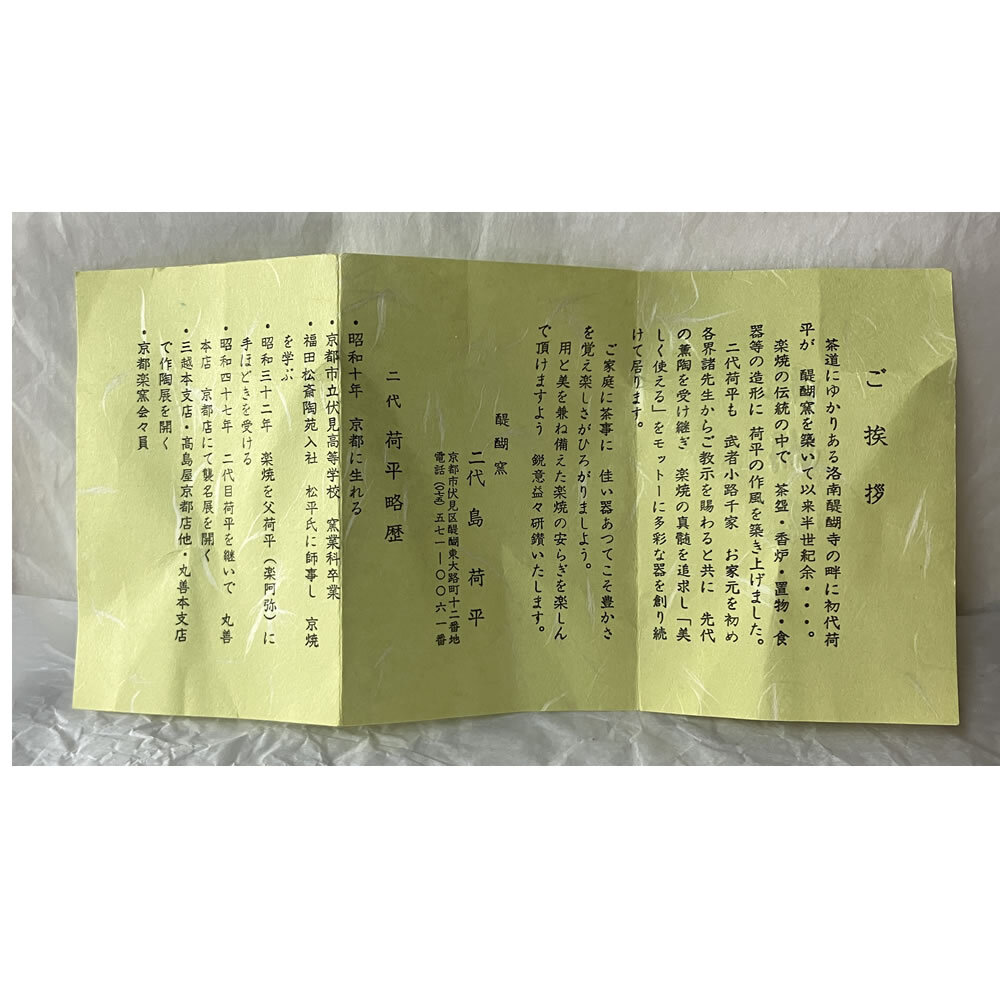 ご挨拶
茶道にゆかりある洛南醍醐寺の畔に初代荷
平が 醍醐窯を築いて以来半世紀余・・・・。
楽焼の伝統の中で 茶盌・香炉・置物・食
器等の造形に 荷平の作風を築き上げました。
二代荷平も 武者小路千家 お家元を初め
各界諸先生からご教示を賜わると共に 先代
の薫陶を受け継ぎ 楽焼の真髄を追求し「美
しく使える」をモットーに多彩な器を創り続
けて居ります。
ご家庭に茶事に 佳い器あつてこそ豊かさ
を覚え楽しさがひろがりましよう。
用と美を兼ね備えた楽焼の安らぎを楽しん
で頂けますよう 鋭意益々研鑽いたします。
醍醐窯
二代 島 荷平
京都市伏見区醍醐東大路町十二番地
電話(〇七五)五七一ー〇〇六一番
二代 荷平略歴
・昭和十年 京都に生れる
・京都市立伏見高等学校 窯業科卒業
・福田松斎陶苑入社 松平氏に師事し 京焼
を学ぶ
・昭和三十二年 楽焼を父荷平(楽阿弥)に
手ほどきを受ける
・昭和四十七年 二代目荷平を継いで 丸善
本店 京都店にて襲名展を開く
・三越本支店・髙島屋京都店他・丸善本支店
で作陶展を開く
・京都楽窯会々員